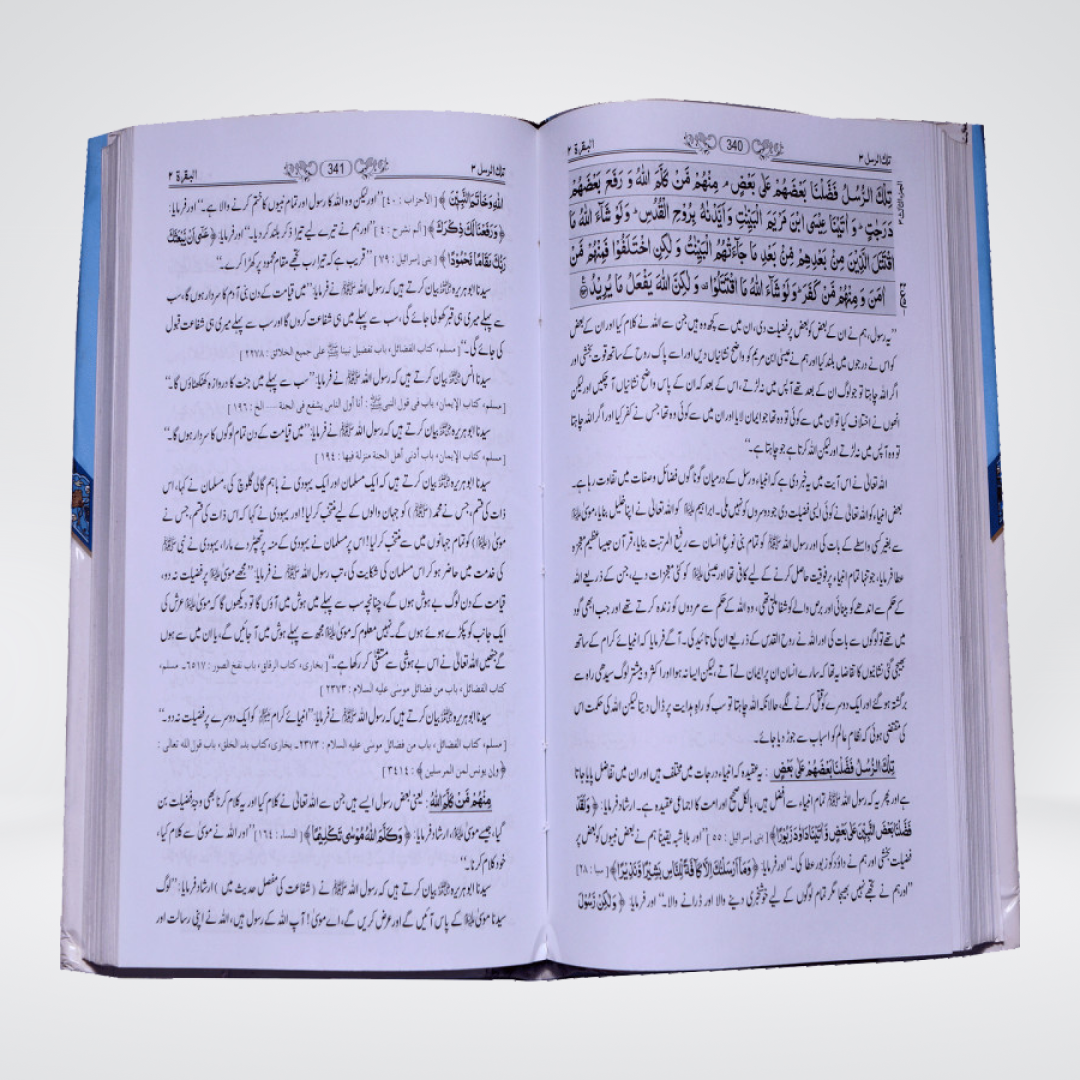 البقرة ۲ 340 تلك الرسل ۳
تِلْكَ الرُّسُلُ فَضَّلْنَا بَعْضَهُمْ عَلٰى بَعْضٍ ۘ مِنْهُمْ مَّنْ كَلَّمَ اللّٰهُ وَ رَفَعَ بَعْضَهُمْ
دَرَجٰتٍ ؕ وَ اٰتَيْنَا عِيْسَى ابْنَ مَرْيَمَ الْبَيِّنٰتِ وَ اَيَّدْنٰهُ بِرُوْحِ الْقُدُسِ ؕ وَ لَوْ شَآءَ اللّٰهُ مَا
اقْتَتَلَ الَّذِيْنَ مِنْۢ بَعْدِهِمْ مِّنْۢ بَعْدِ مَا جَآءَتْهُمُ الْبَيِّنٰتُ وَ لٰكِنِ اخْتَلَفُوْا فَمِنْهُمْ مَّنْ
اٰمَنَ وَ مِنْهُمْ مَّنْ كَفَرَ ؕ وَ لَوْ شَآءَ اللّٰهُ مَا اقْتَتَلُوْا ۟ وَ لٰكِنَّ اللّٰهَ يَفْعَلُ مَا يُرِيْدُ
”یہ رسول، ہم نے ان کے بعض کو بعض پر فضیلت دی، ان میں سے کچھ وہ ہیں جن سے اللہ نے کلام کیا اور ان کے بعض
کو اس نے درجوں میں بلند کیا اور ہم نے عیسیٰ ابن مریم کو واضح نشانیاں دیں اور اسے پاک روح کے ساتھ قوت بخشی اور
اگر اللہ چاہتا تو جو لوگ ان کے بعد تھے آپس میں نہ لڑتے، اس کے بعد کہ ان کے پاس واضح نشانیاں آ چکیں اور لیکن
انھوں نے اختلاف کیا تو ان میں سے کوئی تو وہ تھا جو ایمان لایا اور ان میں سے کوئی وہ تھا جس نے کفر کیا اور اگر اللہ چاہتا
تو وہ آپس میں نہ لڑتے اور لیکن اللہ کرتا ہے جو چاہتا ہے۔“
اللہ تعالیٰ نے اس آیت میں یہ خبر دی ہے کہ انبیاء و رسل کے درمیان گوناگوں فضائل و صفات میں تفاوت رہا ہے۔
بعض انبیاء کو اللہ تعالیٰ نے کوئی ایسی فضیلت دی جو دوسروں کو نہیں ملی۔ ابراہیم علیہ السلام کو اللہ تعالیٰ نے اپنا خلیل بنایا، موسیٰ علیہ السلام
سے بغیر کسی واسطے کے بات کی اور رسول اللہ ﷺ کو تمام بنی نوع انسان سے رفیع المرتبت بنایا، قرآن جیسا عظیم معجزہ
عطا فرمایا، جو تنہا تمام انبیاء پر فوقیت حاصل کرنے کے لیے کافی تھا اور عیسیٰ علیہ السلام کو کئی معجزات دیے، جن کے ذریعے اللہ
کے حکم سے اندھے کو بینائی اور برص والے کو شفا ملتی تھی، وہ اللہ کے حکم سے مردوں کو زندہ کرتے تھے اور جب ابھی گود
میں تھے تو لوگوں سے بات کی اور اللہ نے روح القدس کے ذریعے ان کی تائید کی۔ آگے فرمایا کہ انبیائے کرام کے ساتھ
بھیجی گئی نشانیوں کا تقاضا یہ تھا کہ سارے انسان ان پر ایمان لے آتے، لیکن ایسا نہ ہوا اور اکثر و بیشتر لوگ سیدھی راہ سے
برگشتہ ہو گئے اور ایک دوسرے کو قتل کرنے لگے، حالانکہ اللہ چاہتا تو سب کو راہِ ہدایت پر ڈال دیتا لیکن اللہ کی حکمت اس
کی متقضی ہوئی کہ نظامِ عالم کو اسباب سے جوڑ دیا جائے۔
تِلْكَ الرُّسُلُ فَضَّلْنَا بَعْضَهُمْ عَلٰى بَعْضٍ : یہ عقیدہ کہ انبیاء درجات میں مختلف ہیں اور ان میں تفاضل پایا جاتا
ہے اور پھر یہ کہ رسول اللہ ﷺ تمام انبیاء سے افضل ہیں، بالکل صحیح اور امت کا اجماعی عقیدہ ہے۔ ارشاد فرمایا: ﴿ وَلَقَدْ
فَضَّلْنَا بَعْضَ النَّبِيّٖنَ عَلٰى بَعْضٍ وَّاٰتَيْنَا دَاوٗدَ زَبُوْرًا ﴾ [ بنی إسرائیل : ۵۵ ] ”اور بلاشبہ یقیناً ہم نے بعض نبیوں کو بعض پر
فضیلت بخشی اور ہم نے داؤد کو زبور عطا کی۔“ اور فرمایا: ﴿ وَمَاۤ اَرْسَلْنٰكَ اِلَّا كَآفَّةً لِّلنَّاسِ بَشِيْرًا وَّنَذِيْرًا ﴾ [ سبا : ۲۸ ]
”اور ہم نے تجھے نہیں بھیجا مگر تمام لوگوں کے لیے خوشخبری دینے والا اور ڈرانے والا۔“ اور فرمایا: ﴿ وَلٰكِنْ رَّسُوْلَ
البقرة ۲ 341 تلك الرسل ۳
اللّٰهِ وَخَاتَمَ النَّبِيّٖنَ ﴾ [ الأحزاب : ۴۰ ] ”اور لیکن وہ اللہ کا رسول اور تمام نبیوں کا ختم کرنے والا ہے۔“ اور فرمایا:
﴿ وَرَفَعْنَا لَكَ ذِكْرَكَ ﴾ [ ألم نشرح : ٤ ] ”اور ہم نے تیرے لیے تیرا ذکر بلند کر دیا۔“ اور فرمایا: ﴿ عَسٰۤى اَنْ يَّبْعَثَكَ
رَبُّكَ مَقَامًا مَّحْمُوْدًا ﴾ [ بنی إسرائیل : ۷۹ ] ”قریب ہے کہ تیرا رب تجھے مقام محمود پر کھڑا کرے۔“
سیدنا ابوہریرہ رضی اللہ عنہ بیان کرتے ہیں کہ رسول اللہ ﷺ نے فرمایا: ”میں قیامت کے دن بنی آدم کا سردار ہوں گا، سب
سے پہلے میری ہی قبر کھولی جائے گی، سب سے پہلے میں ہی شفاعت کروں گا اور سب سے پہلے میری ہی شفاعت قبول
کی جائے گی۔“ [ مسلم، کتاب الفضائل، باب تفضیل نبینا ﷺ علی جمیع الخلائق : ۲۲۷۸ ]
سیدنا انس رضی اللہ عنہ بیان کرتے ہیں کہ رسول اللہ ﷺ نے فرمایا: ”سب سے پہلے میں جنت کا دروازہ کھٹکھٹاؤں گا۔“
[ مسلم، کتاب الإیمان، باب فی قول النبی ﷺ : أنا أول الناس یشفع فی الجنة — الخ : ۱۹٦ ]
سیدنا ابوہریرہ رضی اللہ عنہ بیان کرتے ہیں کہ رسول اللہ ﷺ نے فرمایا: ”میں قیامت کے دن تمام لوگوں کا سردار ہوں گا۔“
[ مسلم، کتاب الإیمان، باب أدنی أهل الجنة منزلة فیها : ۱۹٤ ]
سیدنا ابوہریرہ رضی اللہ عنہ بیان کرتے ہیں کہ ایک مسلمان اور ایک یہودی نے باہم گالی گلوچ کی، مسلمان نے کہا، اس
ذات کی قسم، جس نے محمد (ﷺ) کو جہان والوں کے لیے منتخب کر لیا! اور یہودی نے کہا کہ اس ذات کی قسم، جس نے
موسیٰ (علیہ السلام) کو تمام جہانوں میں سے منتخب کر لیا! اس پر مسلمان نے یہودی کے منہ پر تھپڑ دے مارا، یہودی نے نبی ﷺ
کی خدمت میں حاضر ہو کر اس مسلمان کی شکایت کی، تب رسول اللہ ﷺ نے فرمایا: ”مجھے موسیٰ علیہ السلام پر فضیلت نہ دو،
قیامت کے دن لوگ بے ہوش ہوں گے، چنانچہ سب سے پہلے میں ہوش میں آؤں گا تو دیکھوں گا کہ موسیٰ علیہ السلام عرش کی
ایک جانب کو پکڑے ہوئے ہوں گے۔ نہیں معلوم کہ موسیٰ علیہ السلام مجھ سے پہلے ہوش میں آ جائیں گے، یا ان میں سے ہوں
گے جنھیں اللہ تعالیٰ نے اس بے ہوشی سے مستثنیٰ کر رکھا ہے۔“ [ بخاری، کتاب الرقاق، باب نفخ الصور : ٦٥١٧۔ مسلم،
کتاب الفضائل، باب من فضائل موسٰی علیه السلام : ۲۳۷۳ ]
سیدنا ابوہریرہ رضی اللہ عنہ بیان کرتے ہیں کہ رسول اللہ ﷺ نے فرمایا: ”انبیائے کرام علیہم السلام کو ایک دوسرے پر فضیلت نہ دو۔“
[ مسلم، کتاب الفضائل، باب من فضائل موسٰی علیه السلام : ۲۳۷۳۔ بخاری، کتاب بدء الخلق، باب قول الله تعالی :
﴿ وإن یونس لمن المرسلین ﴾ : ۳٤۱٤ ]
مِنْهُمْ مَّنْ كَلَّمَ اللّٰهُ : یعنی بعض رسول ایسے ہیں جن سے اللہ تعالیٰ نے کلام کیا اور یہ کلام کرنا بھی وجہِ فضیلت بن
گیا، جیسے موسیٰ علیہ السلام، ارشاد فرمایا: ﴿ وَكَلَّمَ اللّٰهُ مُوْسٰى تَكْلِيْمًا ﴾ [ النساء : ۱٦٤ ] ”اور اللہ نے موسیٰ سے کلام کیا،
خود کلام کرنا۔“
سیدنا ابوہریرہ رضی اللہ عنہ بیان کرتے ہیں کہ رسول اللہ ﷺ نے (شفاعت کی مفصل حدیث میں) ارشاد فرمایا: ”لوگ
سیدنا موسیٰ علیہ السلام کے پاس آئیں گے اور عرض کریں گے، اے موسیٰ! آپ اللہ کے رسول ہیں، اللہ نے اپنی رسالت اور